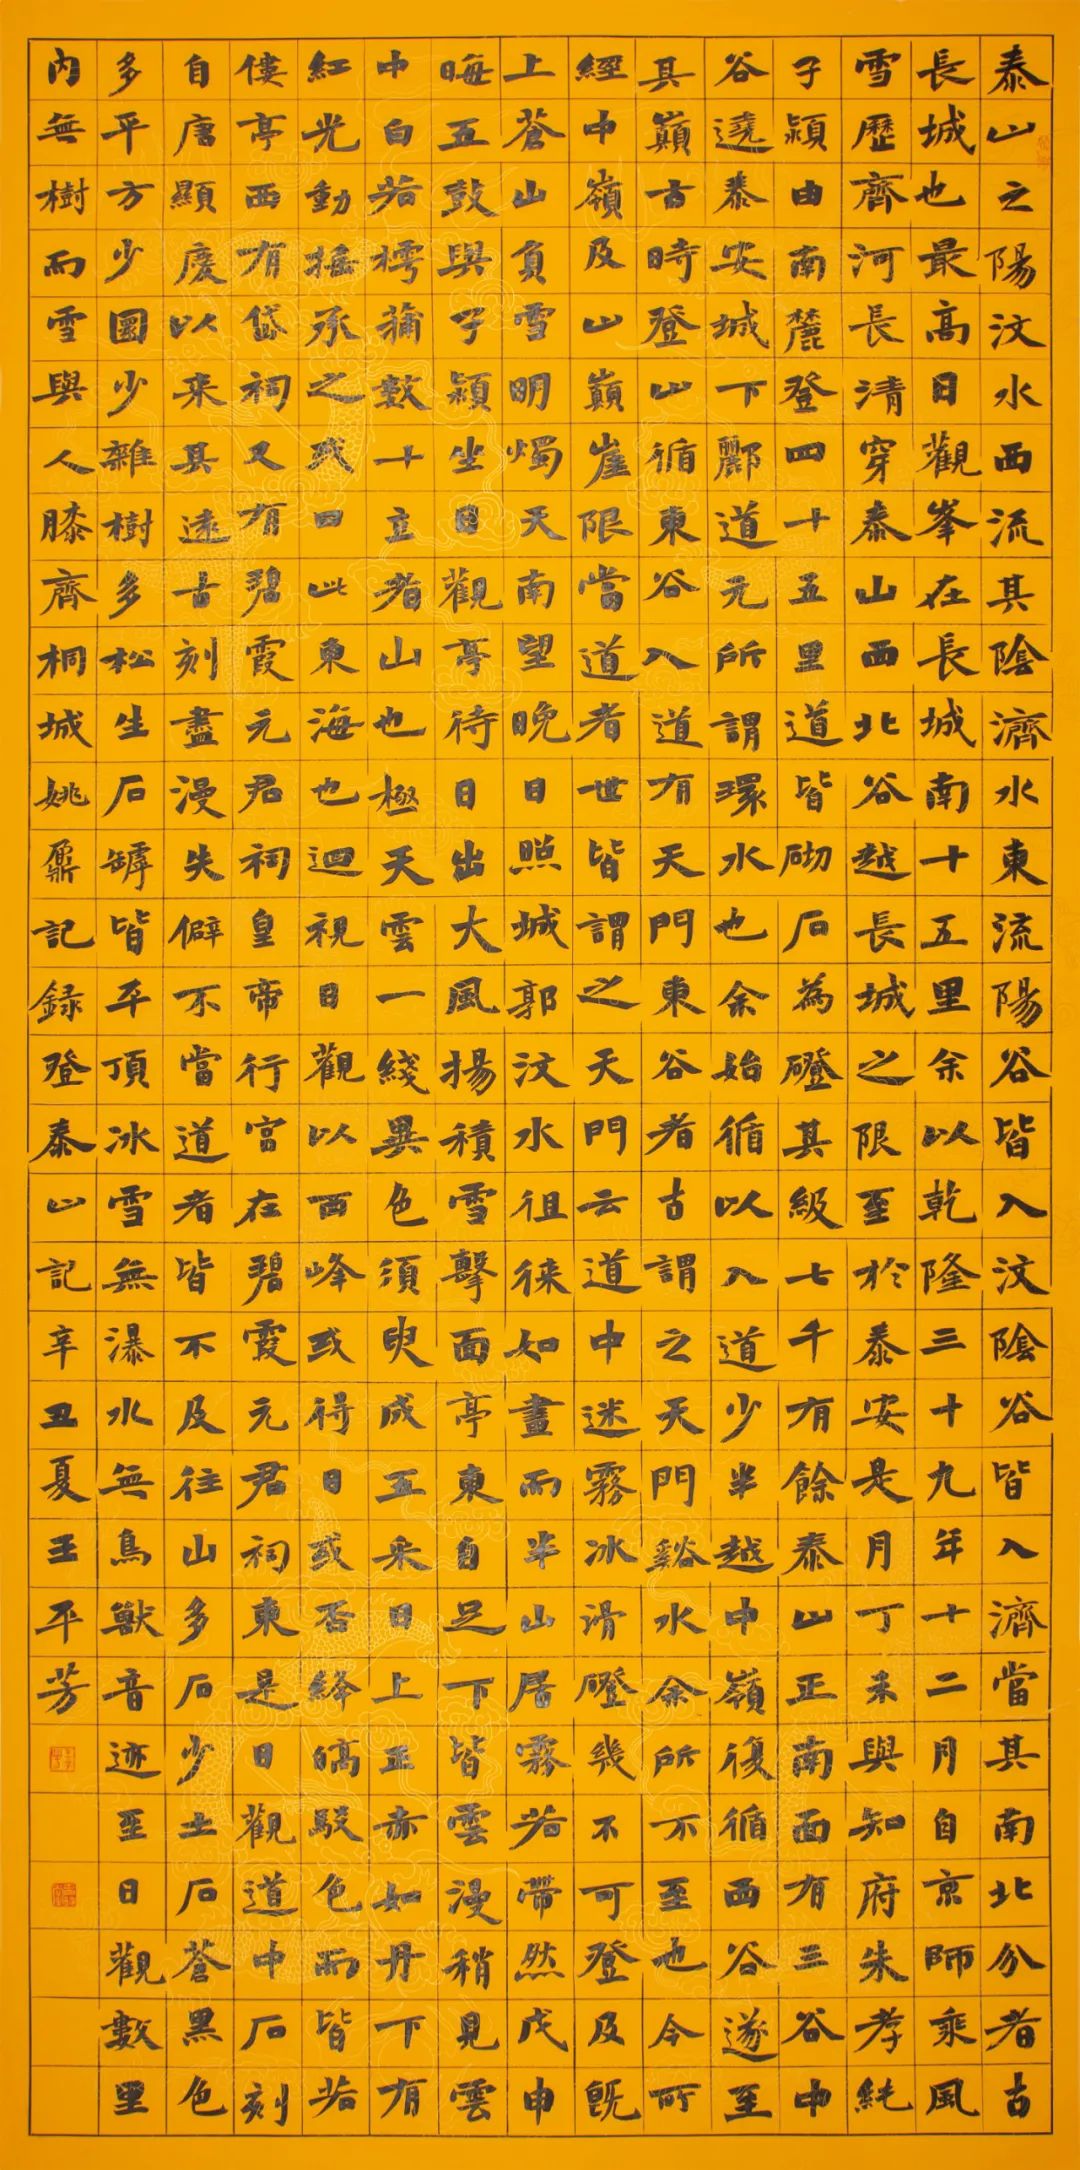 泰山之陽汶水西流其陰濟水東流陽谷皆入汶陰谷皆入濟當其南北分者古
長城也最高日觀峯在長城南十五里余以乾隆三十九年十二月自京師乘風
雪歷齊河長清穿泰山西北谷越長城之限至於泰安是月丁未與知府朱孝純
子潁由南麓登四十五里道皆砌石為磴其級七千有餘泰山正南面有三谷中
谷遶泰安城下酈道元所謂環水也余始循以入道少半越中嶺復循西谷遂至
其巔古時登山循東谷入道有天門東谷者古謂之天門谿水余所不至也今所
經中嶺及山巔崖限當道者世皆謂之天門云道中迷霧冰滑磴幾不可登及既
上蒼山負雪明燭天南望晚日照城郭汶水徂徠如畫而半山居霧若帶然戊申
晦五鼓與子潁坐日觀亭待日出大風揚積雪擊面亭東自足下皆雲漫稍見雲
中白若樗蒲數十立者山也極天雲一綫異色須臾成五采日上正赤如丹下有
紅光動搖承之或曰此東海也迴視日觀以西峰或得日或否絳皜駁色而皆若
僂亭西有岱祠又有碧霞元君祠皇帝行宮在碧霞元君祠東是日觀道中石刻
自唐顯慶以来其遠古刻盡漫失僻不當道者皆不及往山多石少土石蒼黑色
多平方少圜少雜樹多松生石罅皆平頂冰雪無瀑水無鳥獸音迹至日觀數里
內無樹而雪與人膝齊桐城姚鼐記録登泰山記辛丑夏王平芳